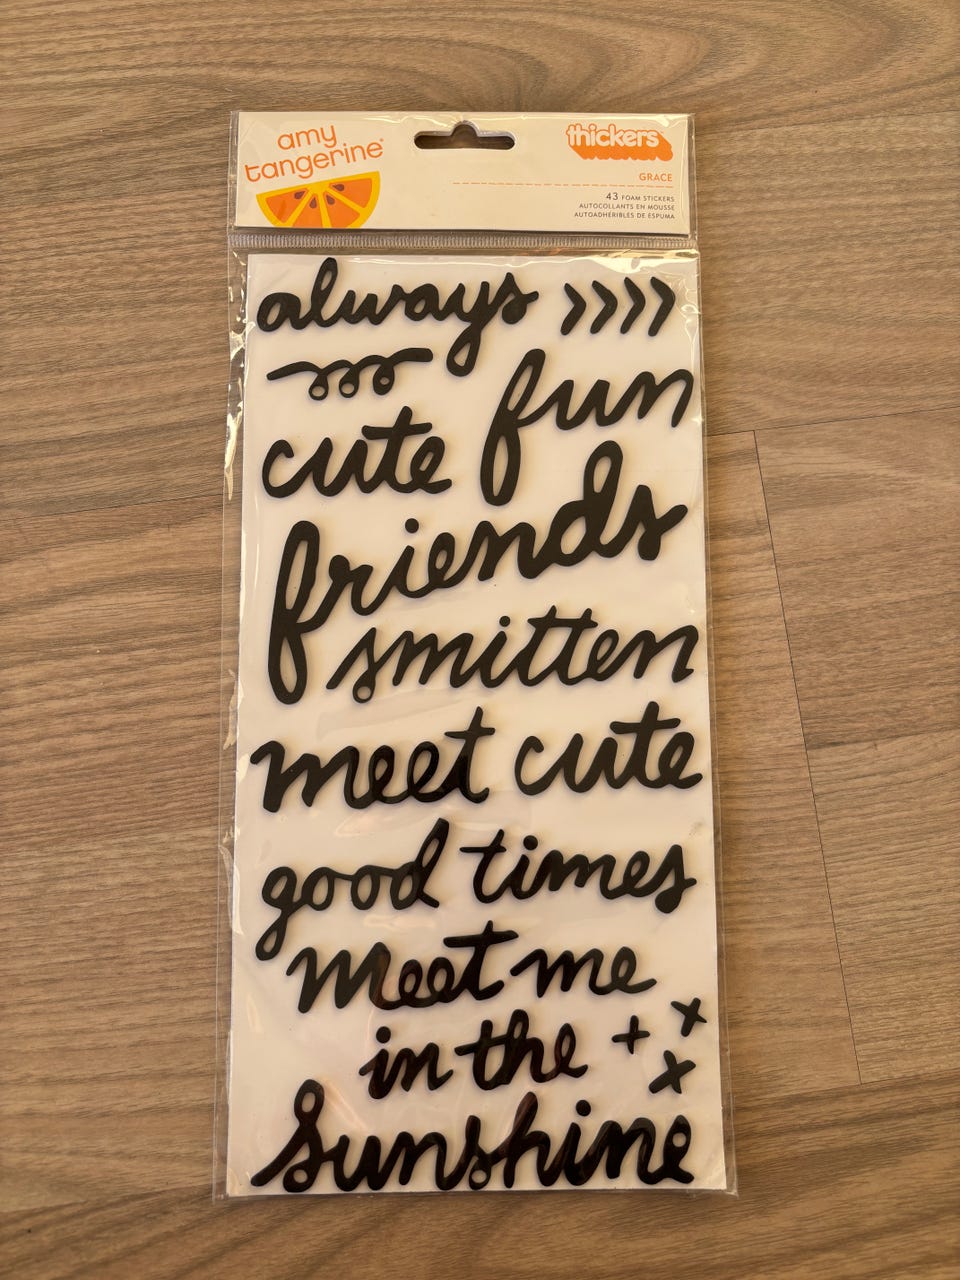 amy
tangerine®
thickers™
GRACE
43 FOAM STICKERS
AUTOCOLLANTS EN MOUSSE
AUTOADHERIBLES DE ESPUMA
always
fun
cute
friends
smitten
meet cute
good times
Meet me
in the
Sunshine